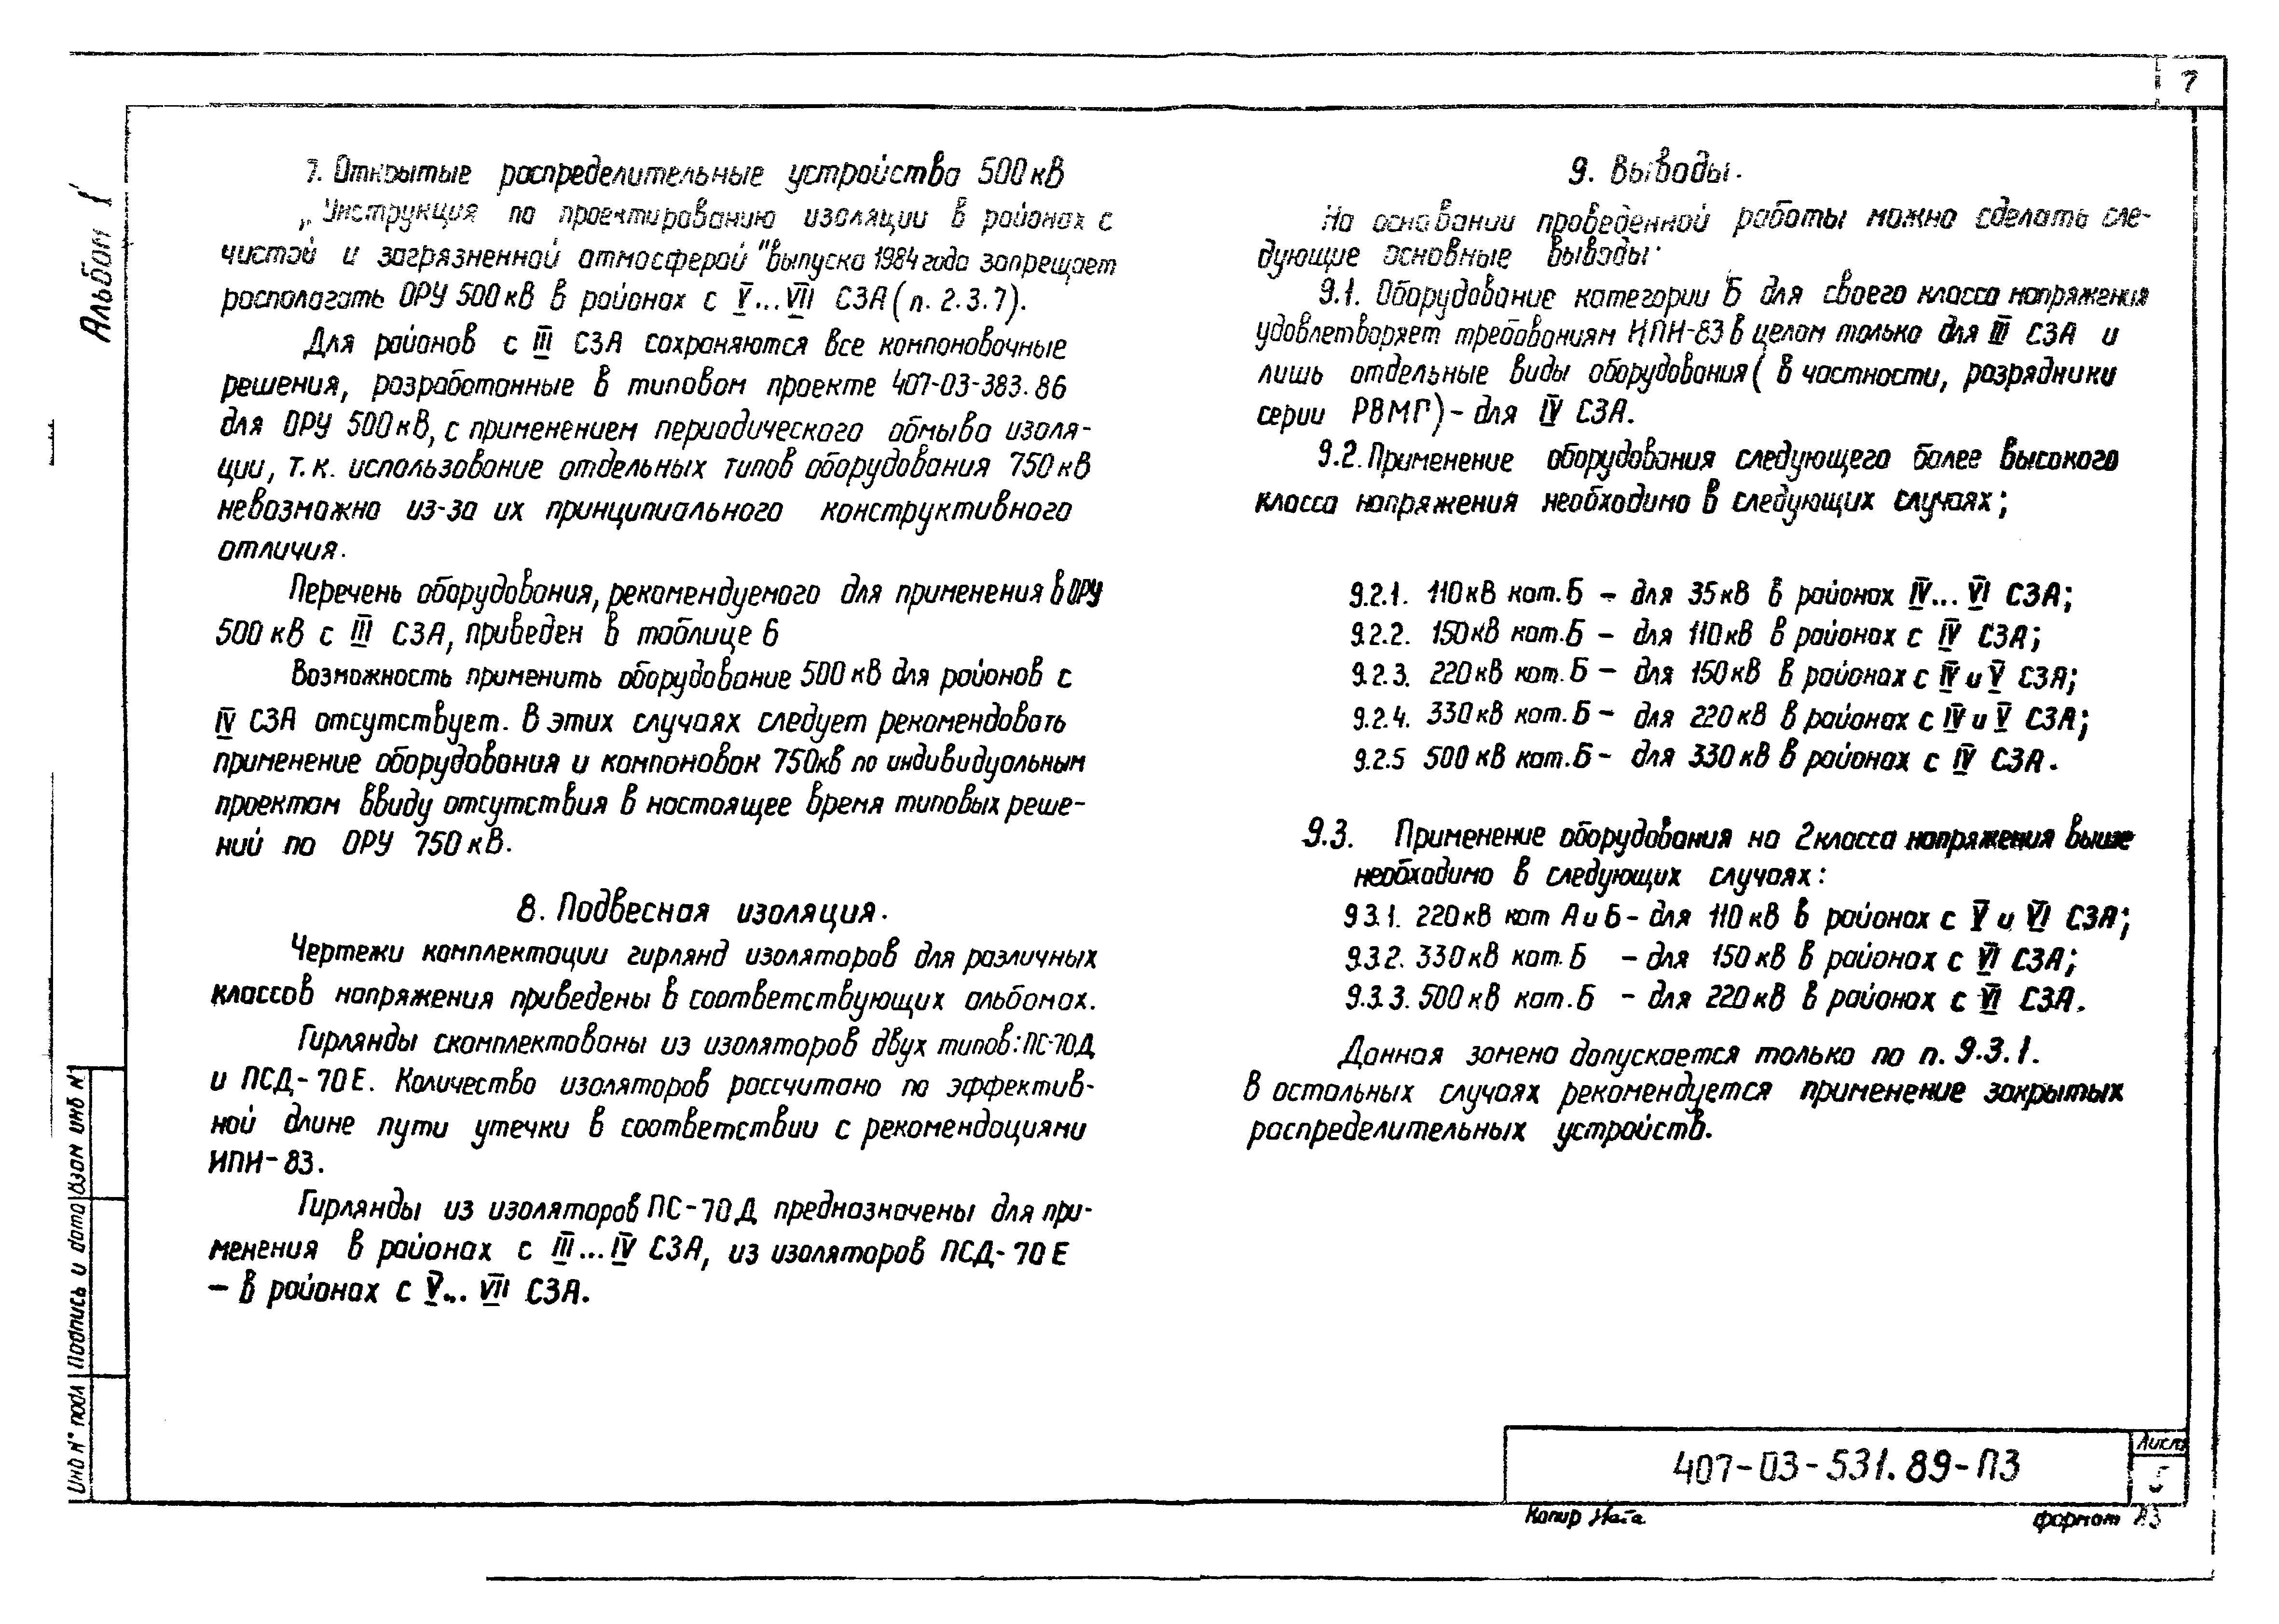 7
Альбом 1
7. Открытые распределительные устройства 500 кВ
„Инструкция по проектированию изоляции в районах с
чистой и загрязненной атмосферой" выпуска 1984 года запрещает
располагать ОРУ 500 кВ в районах с V...VII СЗА (п. 2.3.7).
Для районов с III СЗА сохраняются все компоновочные
решения, разработанные в типовом проекте 407-03-383.86
для ОРУ 500 кВ, с применением периодического обмыва изоля-
ции, т.к. использование отдельных типов оборудования 750 кВ
невозможно из-за их принципиального конструктивного
отличия.
Перечень оборудования, рекомендуемого для применения в ОРУ
500 кВ с III СЗА, приведен в таблице 6
Возможность применить оборудование 500 кВ для районов с
IV СЗА отсутствует. В этих случаях следует рекомендовать
применение оборудования и компоновок 750кв по индивидуальным
проектам ввиду отсутствия в настоящее время типовых реше-
ний по ОРУ 750 кВ.
8. Подвесная изоляция.
Чертежи комплектации гирлянд изоляторов для различных
классов напряжения приведены в соответствующих альбомах.
Гирлянды скомплектованы из изоляторов двух типов: ПС-70Д
и ПСД-70Е. Количество изоляторов рассчитано по эффектив-
ной длине пути утечки в соответствии с рекомендациями
ИПИ-83.
Гирлянды из изоляторов ПС-70Д предназначены для при-
менения в районах с III...IV СЗА, из изоляторов ПСД-70Е
– в районах с V... VII СЗА.
9. Выводы.
На основании проведенной работы можно сделать сле-
дующие основные выводы:
9.1. Оборудование категории Б для своего класса напряжения
удовлетворяет требованиям ИПИ-83 в целом только для III СЗА и
лишь отдельные виды оборудования (в частности, разрядники
серии РВМГ) - для IV СЗА.
9.2. Применение оборудования следующего более высокого
класса напряжения необходимо в следующих случаях;
9.2.1. 110кВ кат. Б – для 35кВ в районах IV... VI СЗА;
9.2.2. 150кВ кат. Б – для 110кВ в районах с IV СЗА;
9.2.3. 220кВ кат. Б – для 150кВ в районах с IV и V СЗА;
9.2.4. 330кВ кат. Б – для 220кВ в районах с IV и V СЗА;
9.2.5 500 кВ кат. Б – для 330кВ в районах с IV СЗА.
9.3. Применение оборудования на 2 класса напряжения выше
необходимо в следующих случаях:
9.3.1. 220кВ кат А и Б – для 110кВ в районах с V и VI СЗА;
9.3.2. 330кВ кат. Б – для 150кВ в районах с VI СЗА;
9.3.3. 500кВ кат. Б – для 220кВ в районах с VI СЗА.
Данная замена допускается только по п. 9.3.1.
В остальных случаях рекомендуется применение закрытых
распределительных устройств.
Инв N° подл
Подпись и дата
Взам инв N°
407-03-531.89-ПЗ
Лист
5
Копир Ната
формат А3